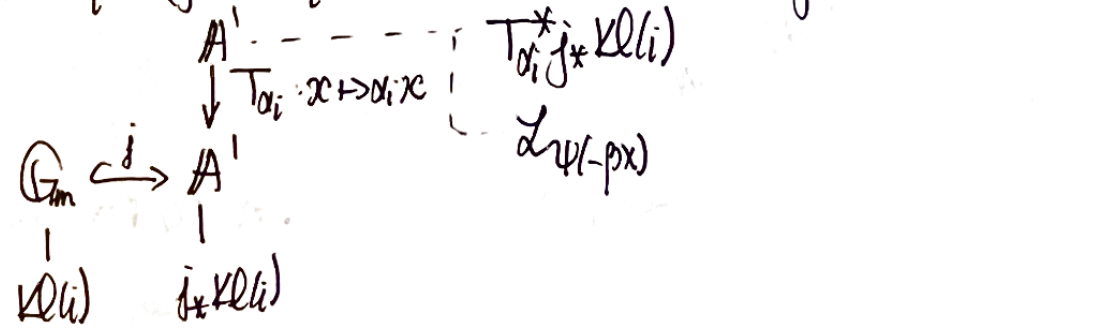 𝔸¹ - - - - T*_{αᵢ} j_* Kl(i)
↓ T_{αᵢ} : x ↦ αᵢx
ℒ_{ψ(-βx)}
𝔾ₘ ↪ʲ 𝔸¹
Kl(i) j_* Kl(i)